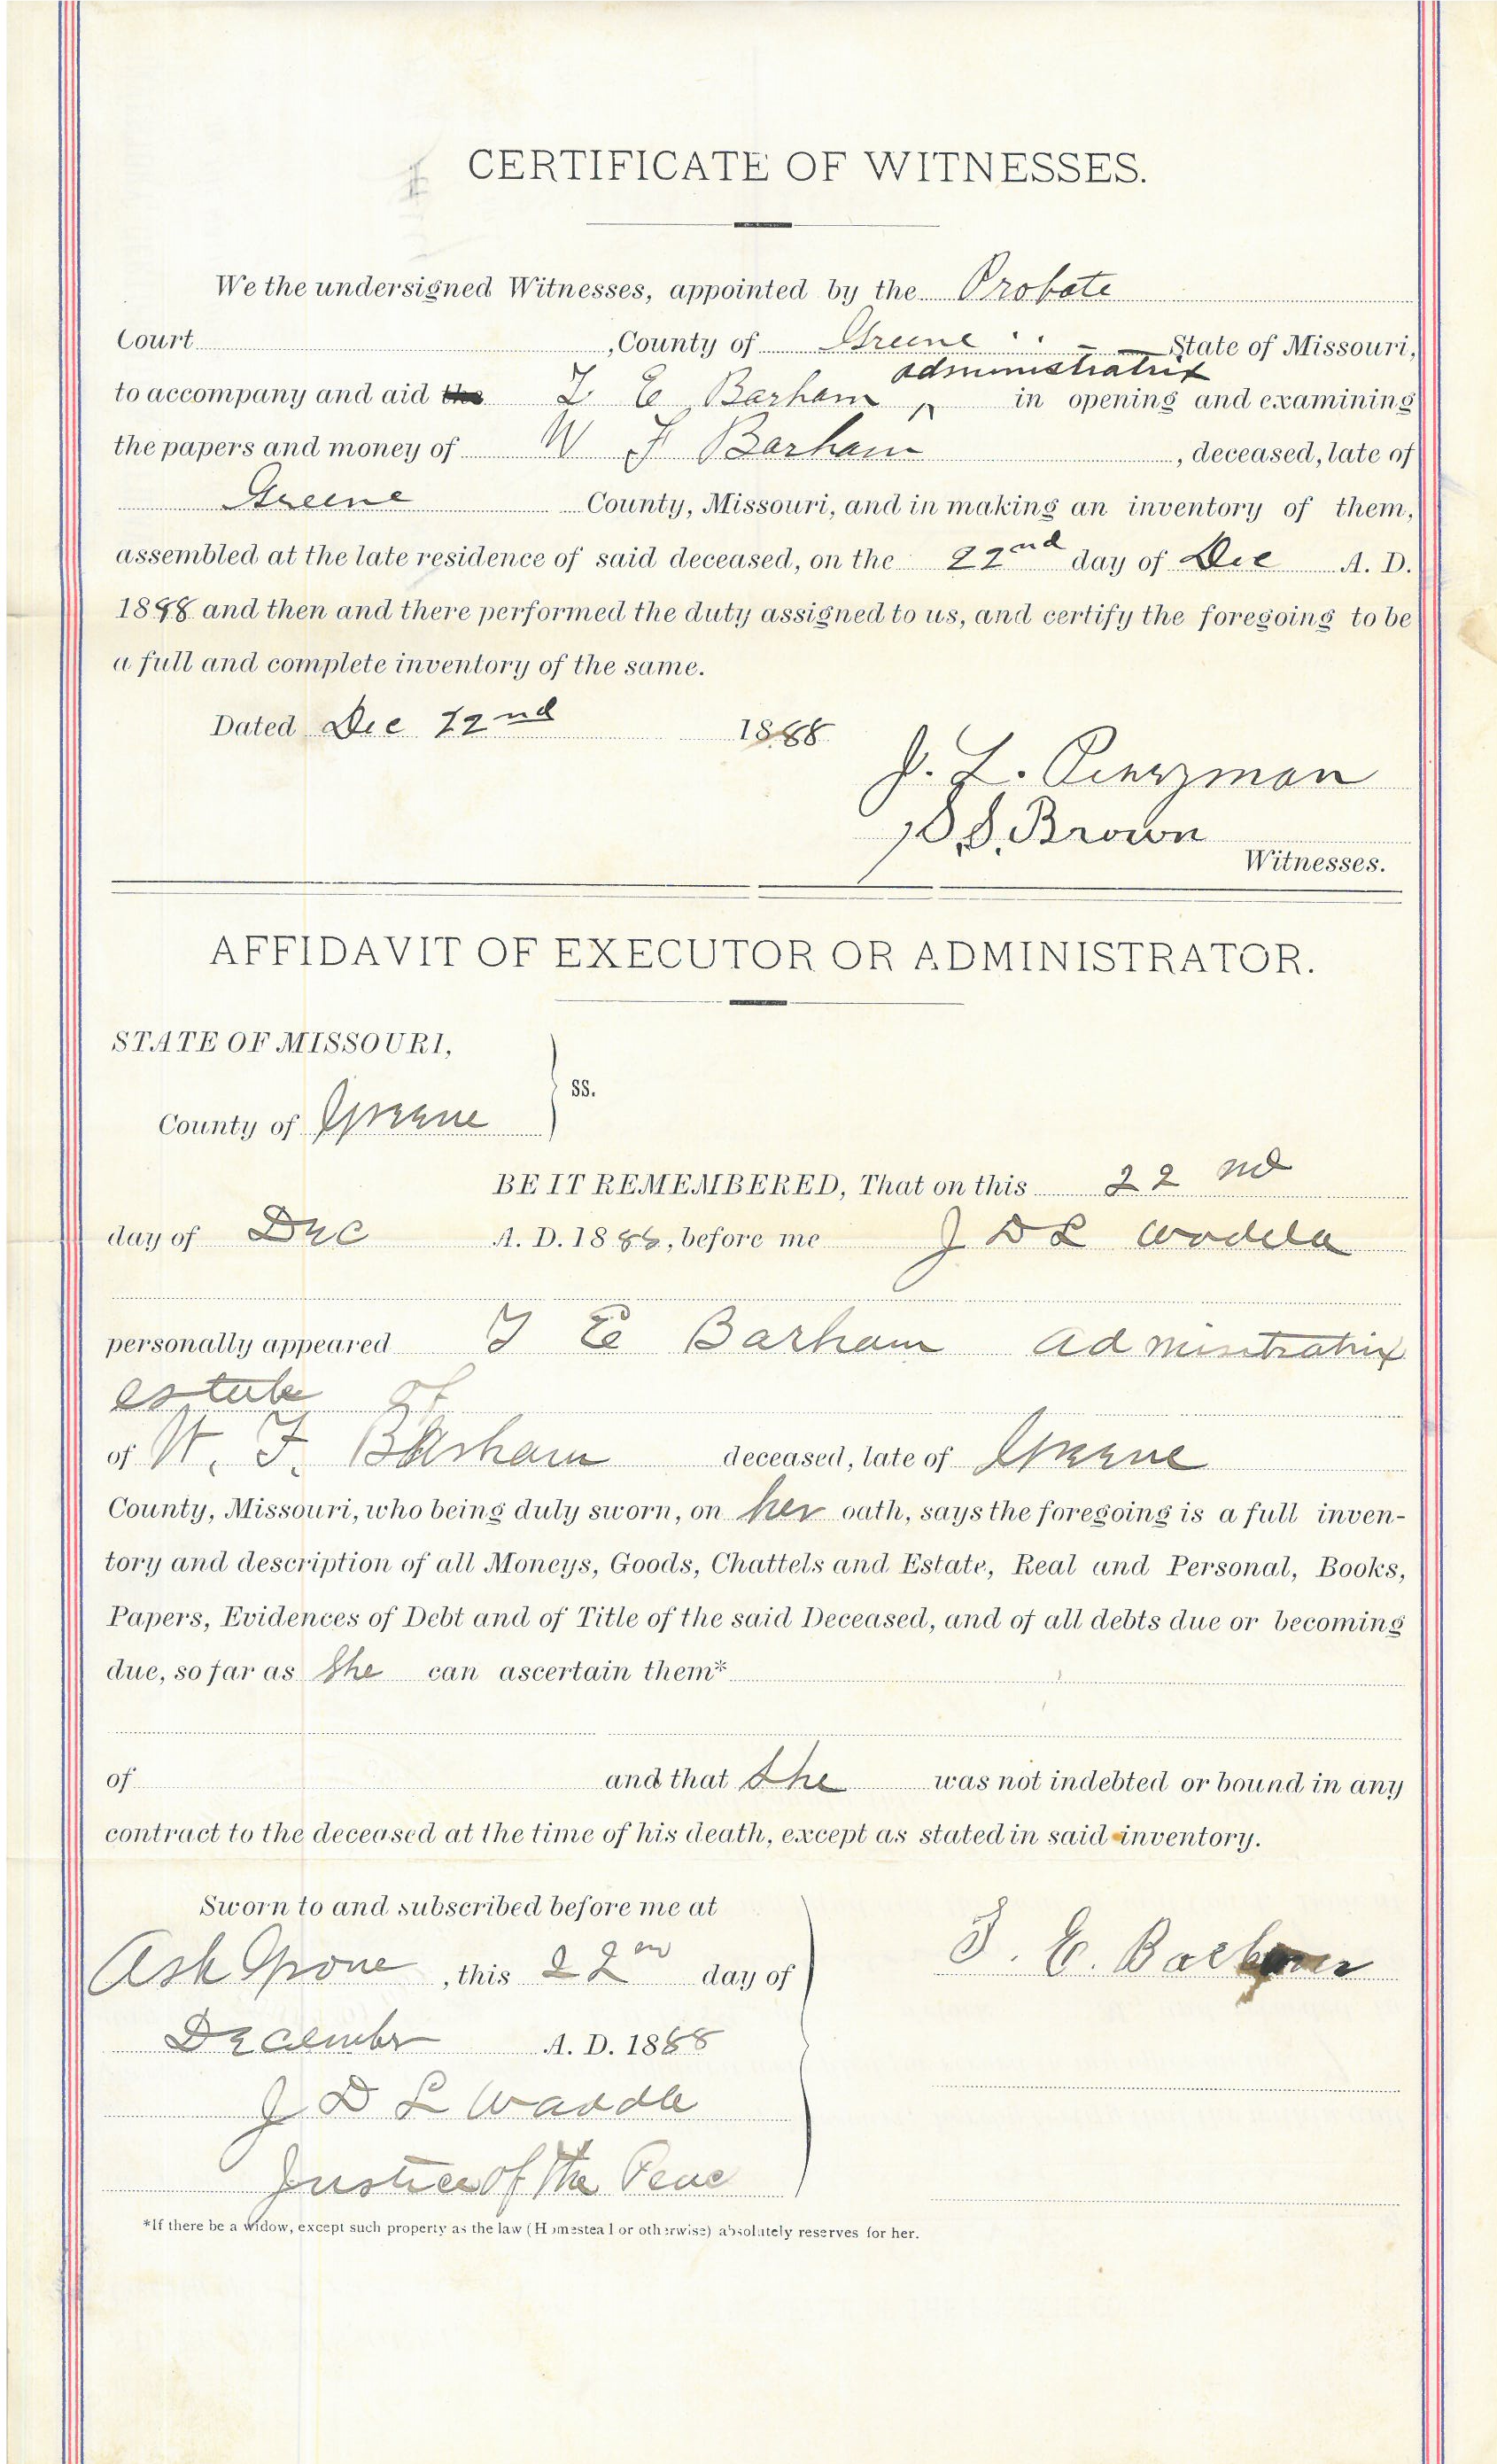 CERTIFICATE OF WITNESSES.
We the undersigned Witnesses, appointed by the Probate
Court , County of Greene State of Missouri,
administratrix
to accompany and aid the T E Barham ^ in opening and examining
the papers and money of W F Barham , deceased, late of
Greene County, Missouri, and in making an inventory of them,
assembled at the late residence of said deceased, on the 22nd day of Dec A. D.
1888 and then and there performed the duty assigned to us, and certify the foregoing to be
a full and complete inventory of the same.
Dated Dec 22nd 1888
J. L.
S. Brown
Witnesses.
AFFIDAVIT OF EXECUTOR OR ADMINISTRATOR.
STATE OF MISSOURI,
ss.
County of Greene
BE IT REMEMBERED, That on this 22 nd
day of Dec A. D. 1888, before me J D L
personally appeared T E Barham Adminstratrix
estate of
of W. F. Barham deceased, late of Greene
County, Missouri, who being duly sworn, on her oath, says the foregoing is a full inven-
tory and description of all Moneys, Goods, Chattels and Estate, Real and Personal, Books,
Papers, Evidences of Debt and of Title of the said Deceased, and of all debts due or becoming
due, so far as She can ascertain them*
of and that She was not indebted or bound in any
contract to the deceased at the time of his death, except as stated in said inventory.
Sworn to and subscribed before me at
Ash Grove , this 22nd day of
T. E. Barham
December A. D. 1888
J D L Waddle
Justice of the Peace
*If there be a widow, except such property as the law (Homestead or otherwise) absolutely reserves for her.